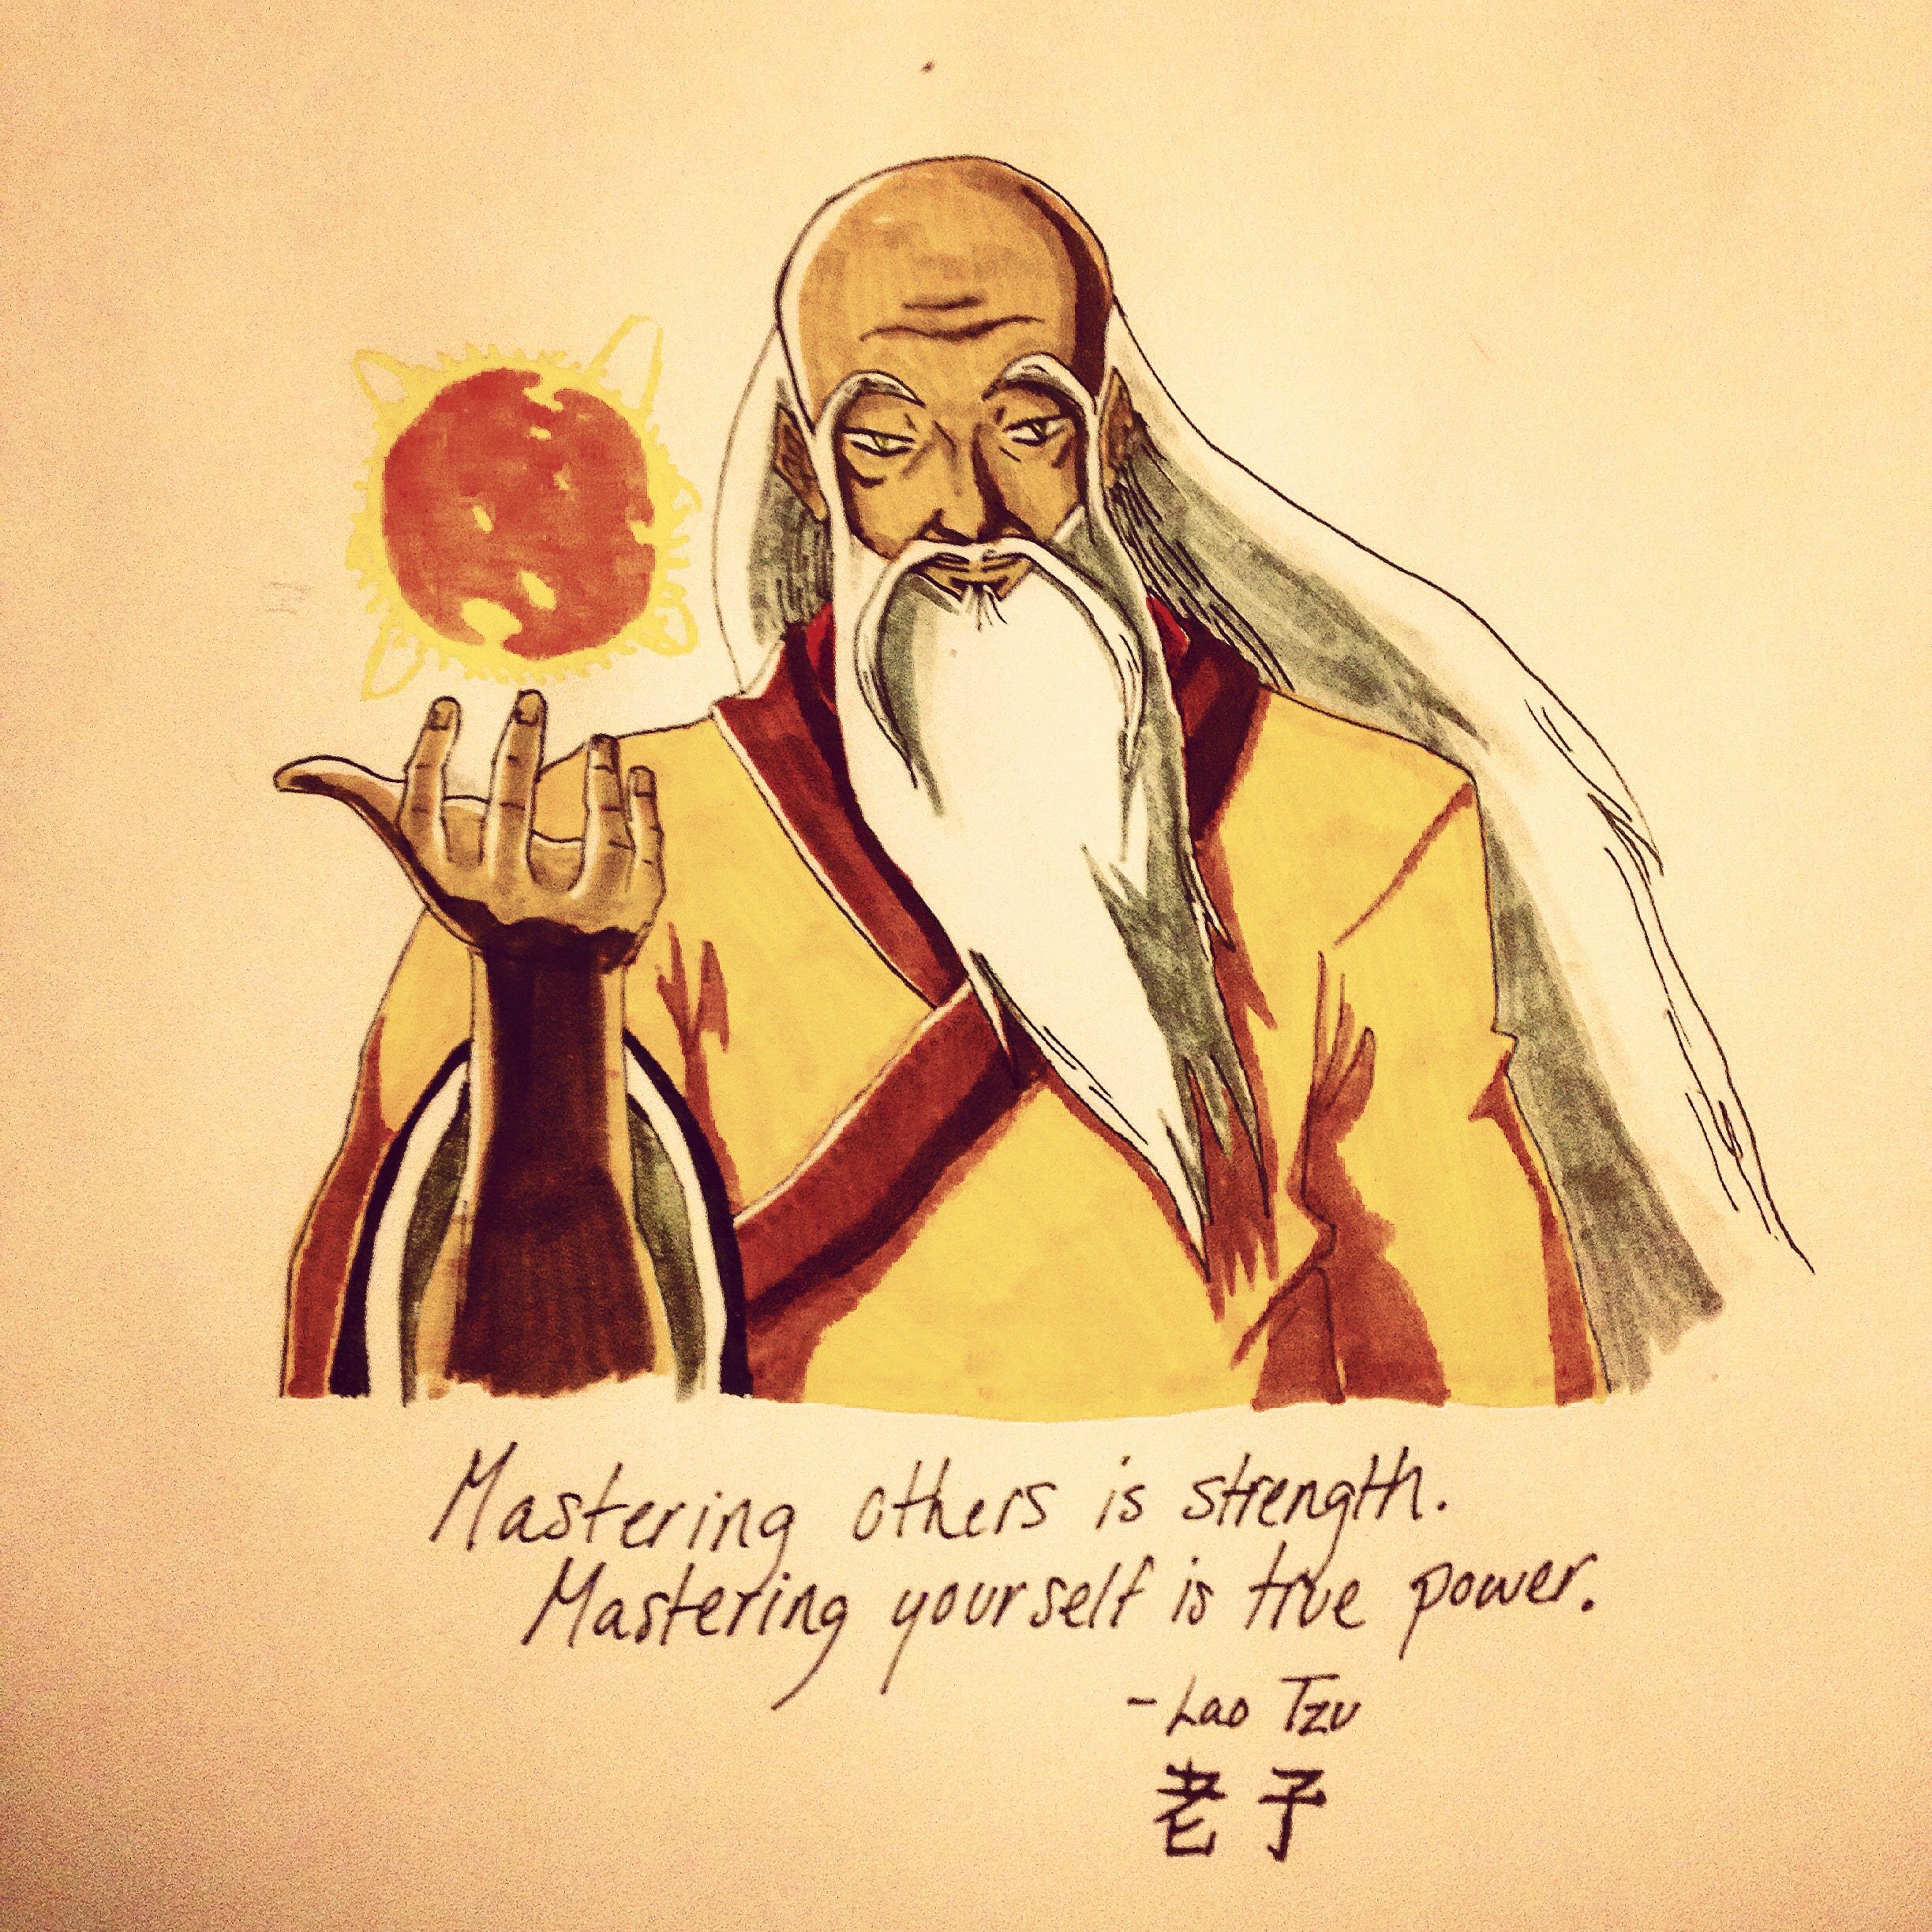 Mastering others is strength.
Mastering yourself is true power.
-Lao Tzu
老子